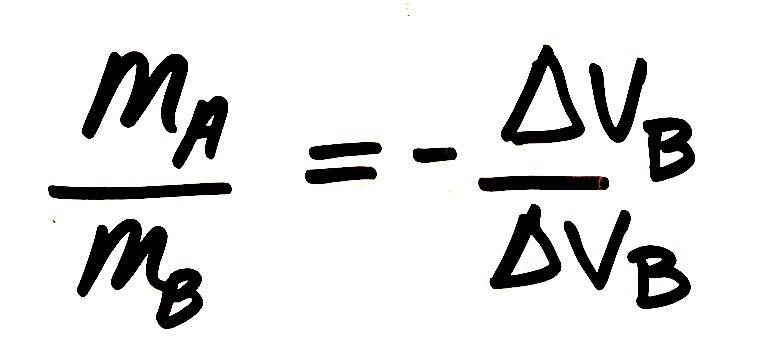 m_A / m_B = - ΔV_B / ΔV_B